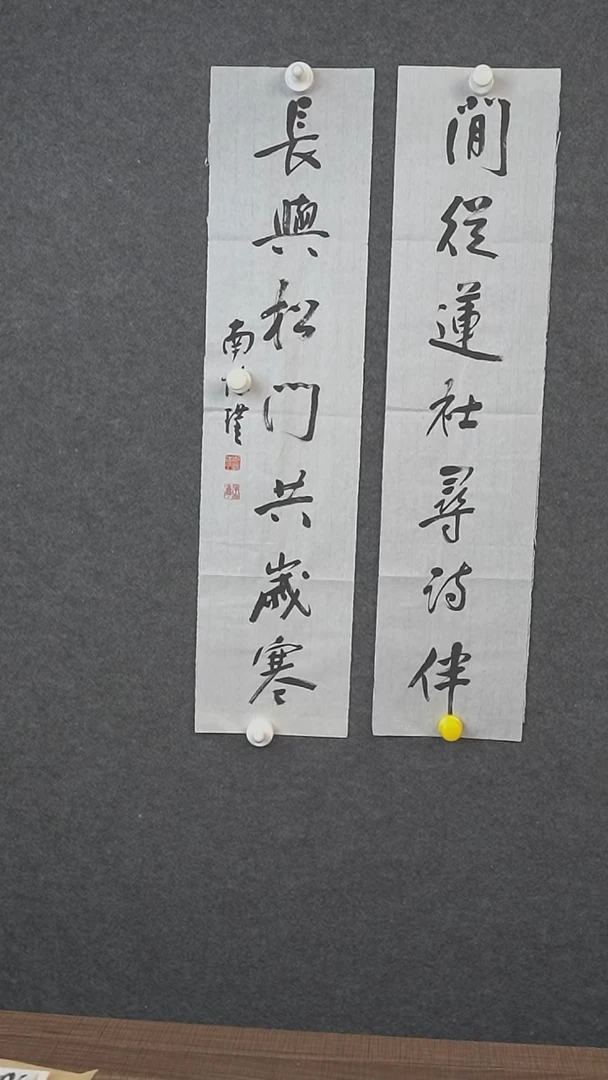 閒從蓮社尋詩伴
長與松門共歲寒
南 瑾